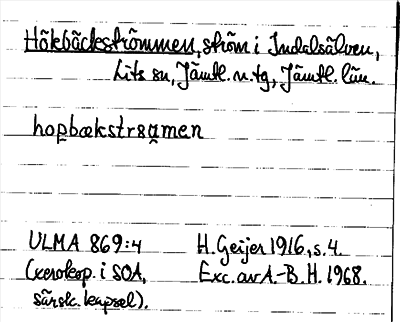 Hökbäckströmmen, ström i Indalsälven,
Lits sn, Jämtl. n. tg, Jämtl. län.
hop̱bækstr8a̭men
ULMA 869:4
(xerokop. i SOA,
särsk. kapsel).
H. Geijer 1916, s. 4.
Exc. av A.-B. H. 1968.